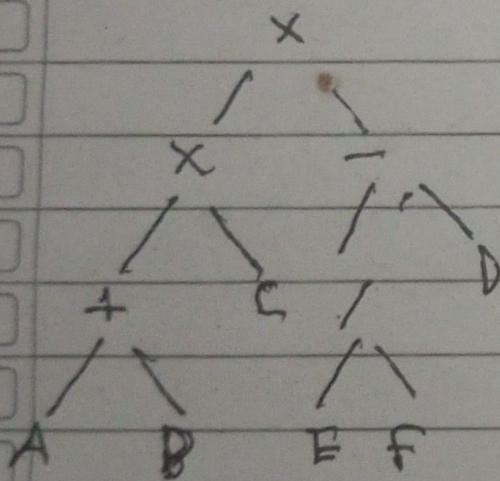 ×
× −
+ C / D
A B E F